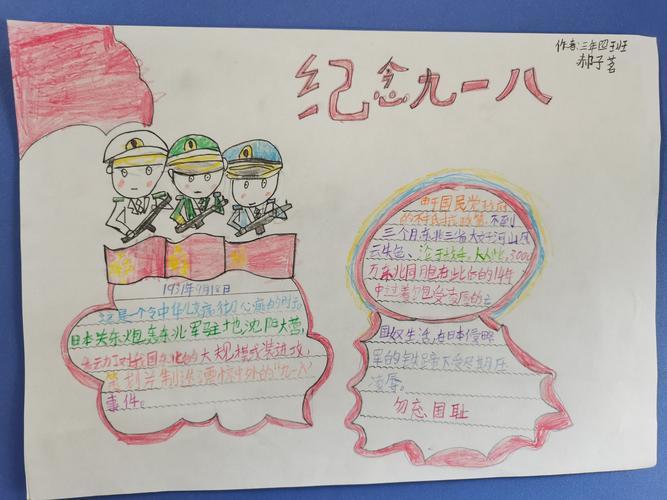 作者:三年四班
郝子茗
纪念九一八
1931年9月18日
这是一个令中华儿女痛彻心扉的时刻
日本关东炮轰东北军驻地沈阳大营,
动了对我国东北的大规模武装进攻,
策划并制造了震惊中外的"九一八"
事件。
由于国民党政府
的不抵抗政策,不到
三个月,东北三省大好河山风
云失色、沦于敌手。从此,3000
万东北同胞在此后的14年
中过着饱受凌辱的亡
国奴生活,在日本侵略
军的铁蹄下受尽欺压
凌辱。
勿忘国耻